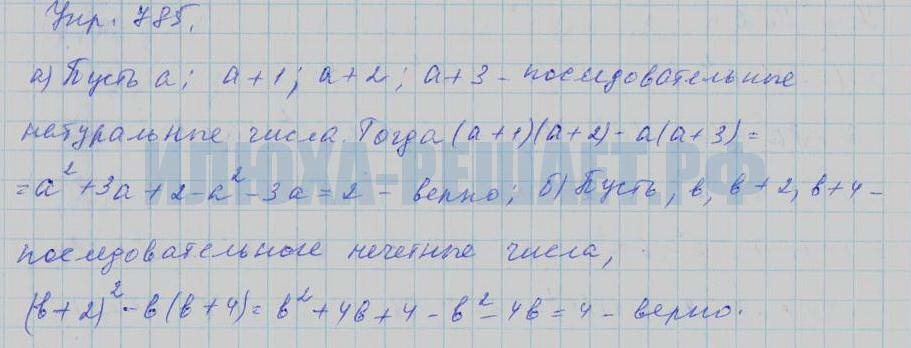 Упр. 785.
а) Пусть a; a+1; a+2; a+3 - последовательные
натуральные числа. Тогда (a+1)(a+2) - a(a+3) =
= a² + 3a + 2 - a² - 3a = 2 - верно; б) Пусть, в, в+2, в+4 -
ИЛЮХА-РЕШАЕТ.РФ
последовательные нечетные числа,
(в+2)² - в(в+4) = в² + 4в + 4 - в² - 4в = 4 - верно.